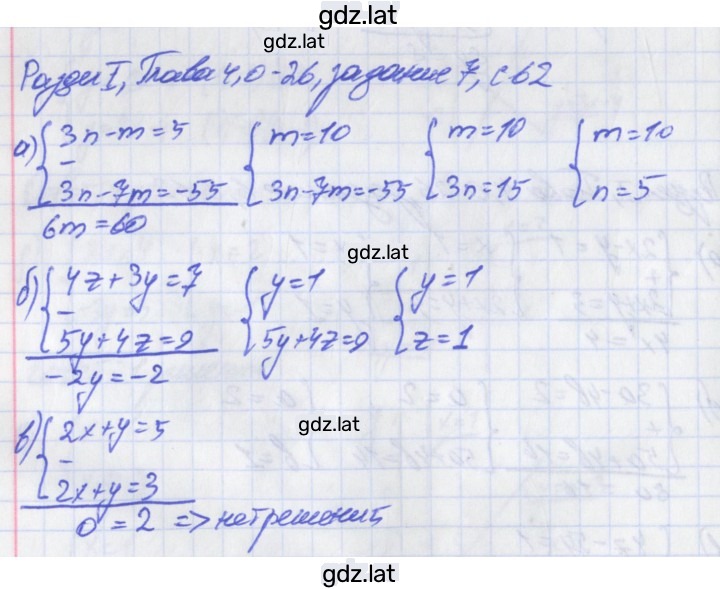 gdz.lat
gdz.lat
Раздел I, Глава 4, О-26, задание 7, с 62
а) { 3n-m=5 { m=10 { m=10 { m=10
-
3n-7m=-55 3n-7m=-55 3n=15 n=5
6m=60
gdz.lat
б) { 4z+3y=7 { y=1 { y=1
-
5y+4z=9 5y+4z=9 z=1
-2y=-2
gdz.lat
в) { 2x+y=5
-
2x+y=3
0=2 => нет решений
gdz.lat